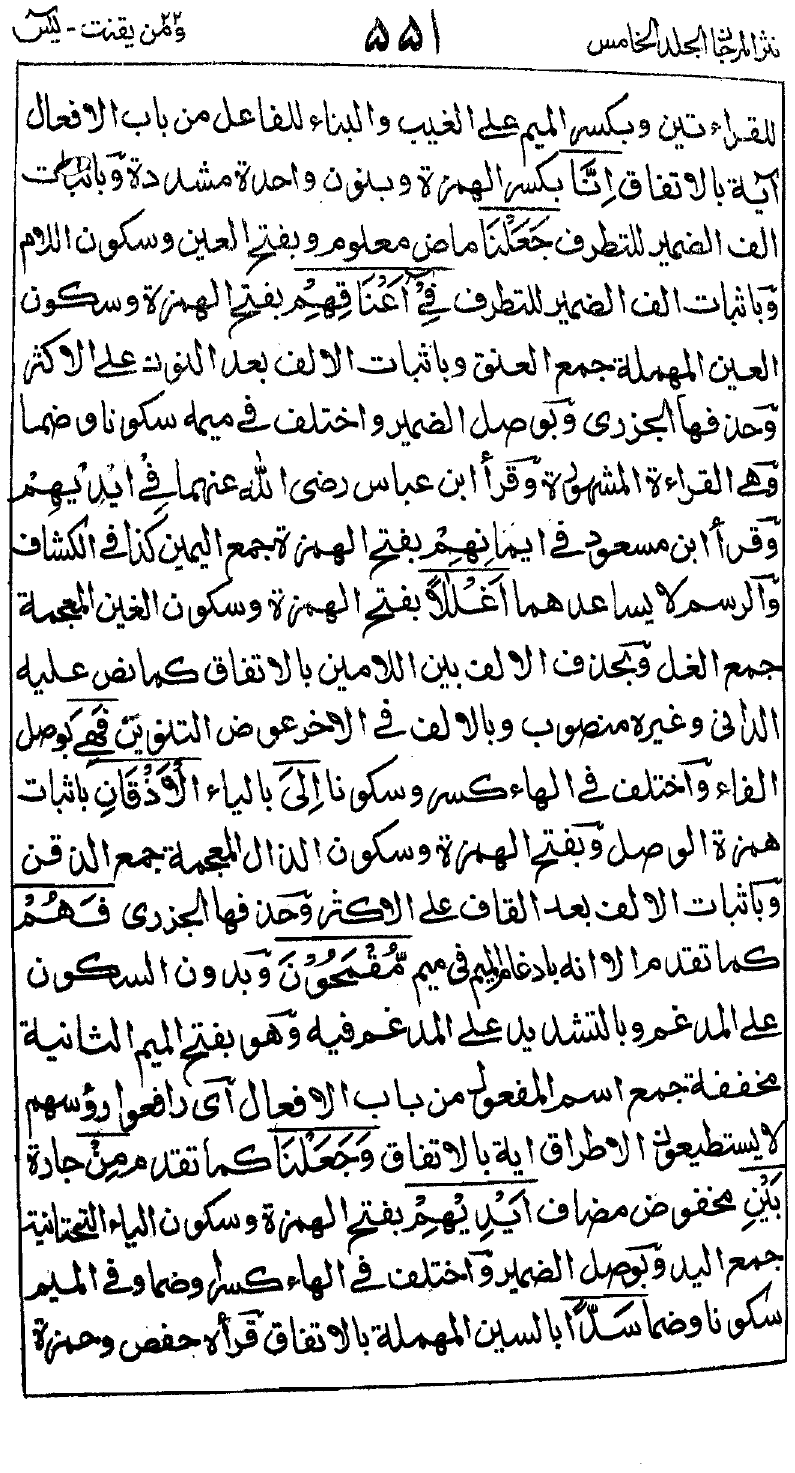 نثر المرجان الجلد الخامس ۵۵۱ ومن يقنت ٢٢ - يٰسٓ
للقراءتين وبكسر الميم على الغيب والبناء للفاعل من باب الافعال
آية بالاتفاق اِنَّا بكسر الهمزة وبنون واحدة مشددة وباثبات
الف الضمير للتطرف جَعَلْنَا ماض معلوم وبفتح العين وسكون اللام
وباثبات الف الضمير للتطرف فِيْٓ اَعْنَاقِهِمْ بفتح الهمزة وسكون
العين المهملة جمع العنق وباثبات الالف بعد النون على الاكثر
وحذفها الجزرى وبوصل الضمير واختلف فى ميمه سكونا وضما
وهي القراءة المشهورة وقرأ ابن عباس رضى الله عنهما فِيْ ايْدِيْهِمْ
وقرأ ابن مسعود فى ايمانِهِمْ بفتح الهمزة جمع اليمين كذا فى الكشاف
والرسم لا يساعدهما اَغْلٰلًا بفتح الهمزة وسكون الغين المعجمة
جمع الغل وبحذف الالف بين اللامين بالاتفاق كما نص عليه
الدانى وغيره منصوب وبالالف فى الاخر عوض التنوين فَهِيَ بوصل
الفاء واختلف فى الهاء كسر وسكونا اِلَى بالياء الْاَذْقَانِ باثبات
همزة الوصل وبفتح الهمزة وسكون الذال المعجمة جمع الذقن
وباثبات الالف بعد القاف على الاكثر وحذفها الجزرى فَهُمْ
كما تقدم الا انه بادغام الميم فى ميم مُّقْمَحُوْنَ وبدون السكون
على المدغم وبالتشديد على المدغم فيه وهو بفتح الميم الثانية
مخففة جمع اسم المفعول من باب الافعال اى رافعوا رؤسهم
لا يستطيعون الاطراق اية بالاتفاق وَجَعَلْنَا كما تقدم مِنْ جادة
بَيْنِ مخفوض مضاف اَيْدِيْهِمْ بفتح الهمزة وسكون الياء التحتانية
جمع اليد وبوصل الضمير واختلف فى الهاء كسرا وضما وفى الميم
سكونا وضما سَدًّا بالسين المهملة بالاتفاق قرأه حفص وحمزة